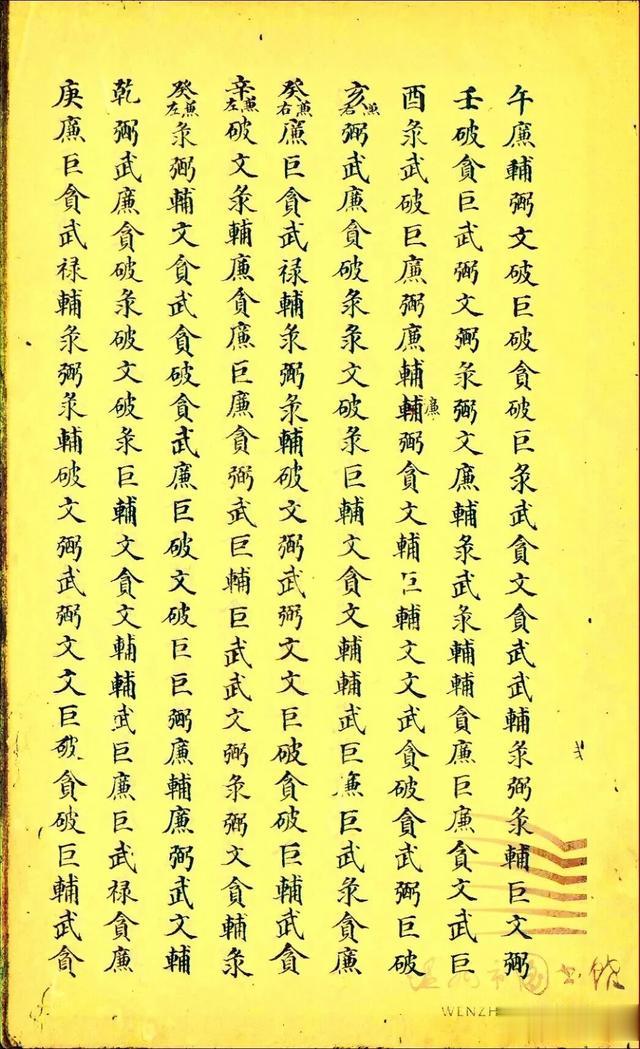 午廉輔弼文破巨破貪破巨彔武貪文貪武武輔彔弼彔輔巨文弼
壬破貪巨武弼文弼彔弼文廉輔彔武彔輔輔貪廉巨廉貪文武巨
酉彔武破巨廉弼廉輔輔廉弼貪文輔巨輔文文武貪破貪武弼巨破
亥兼右弼武廉貪破彔彔文破彔巨輔文貪文輔輔武巨廉巨武彔貪廉
癸兼右廉巨貪武禄輔彔弼彔輔破文弼武弼文文巨破貪破巨輔武貪
辛兼左破文彔輔廉貪廉巨廉貪弼武巨輔巨武武文弼彔弼文貪輔彔
癸兼左彔弼輔文貪武貪破貪武廉巨破文破巨巨弼廉輔廉弼武文輔
乾弼武廉貪破彔破文破彔巨輔文貪文輔輔武巨廉巨武禄貪廉
庚廉巨貪武禄輔彔弼彔輔破文弼武弼文文巨破貪破巨輔武貪
温州市图书馆
WENZH